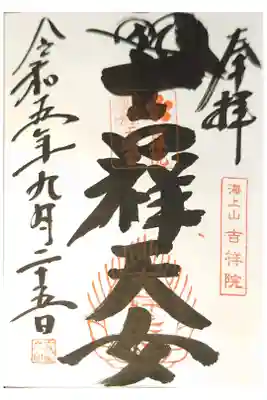 奉拝
海上山 吉祥院
吉祥天女
令和五年九月二十五日